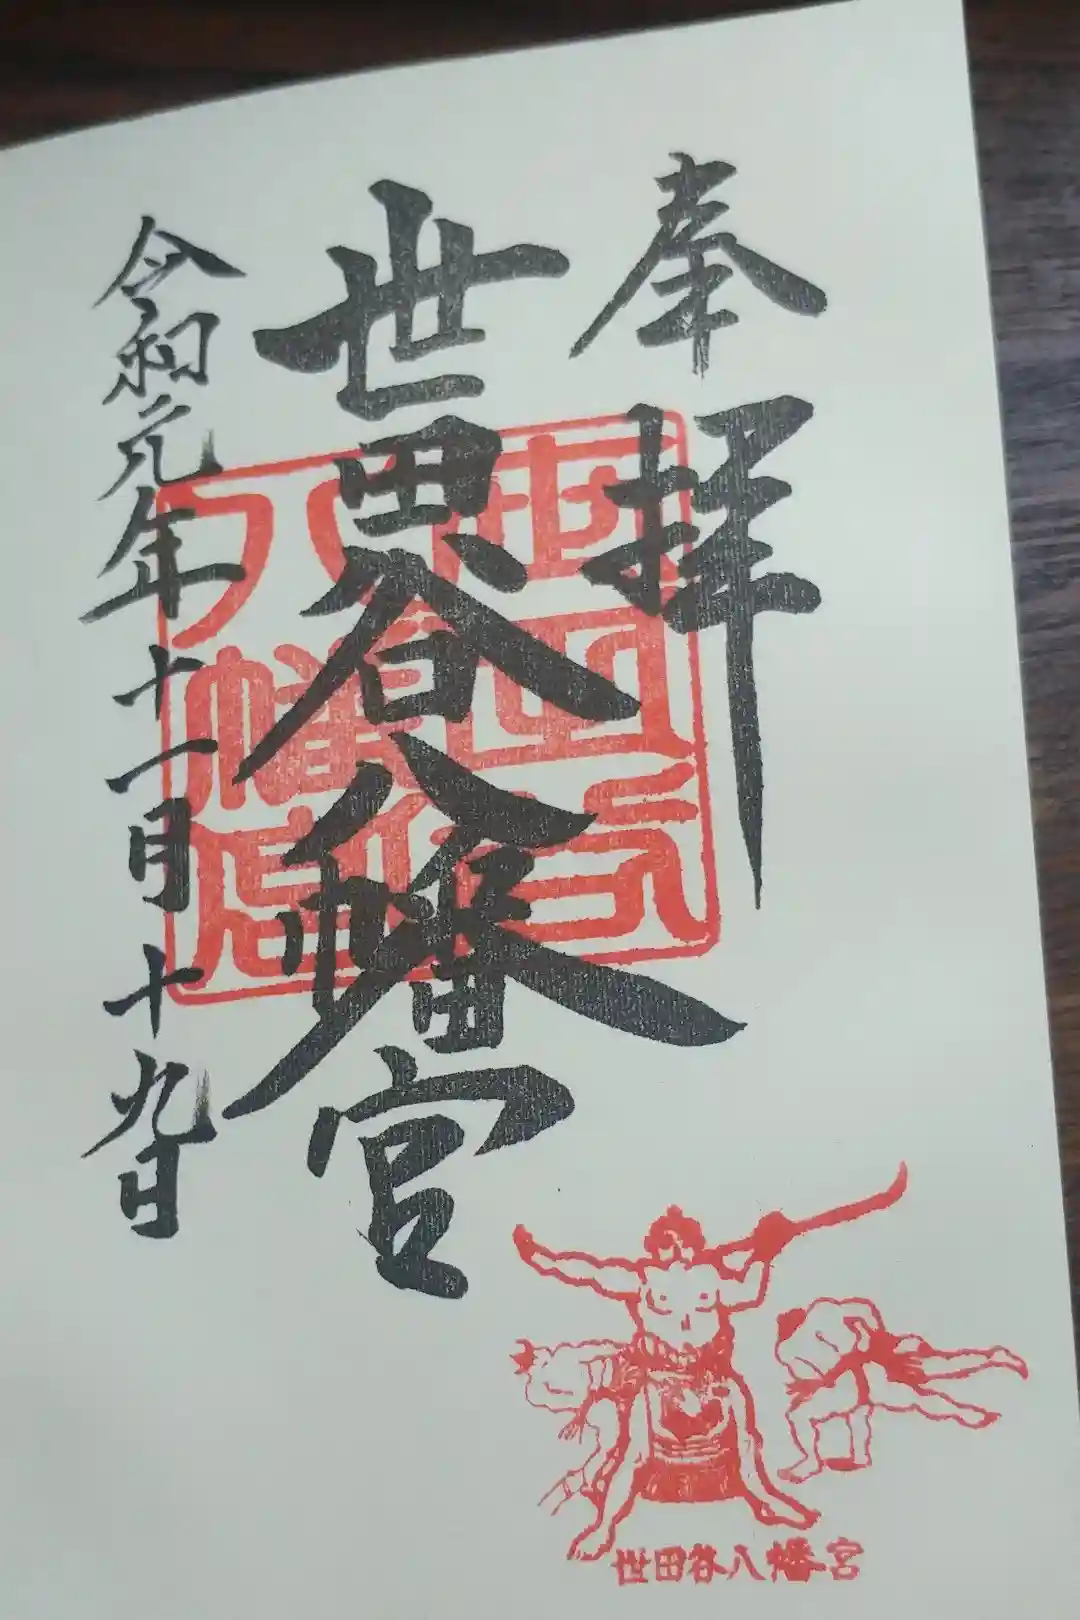 奉拝
世田谷八幡宮
世田谷
八幡宮
令和元年十一月十九日
世田谷八幡宮